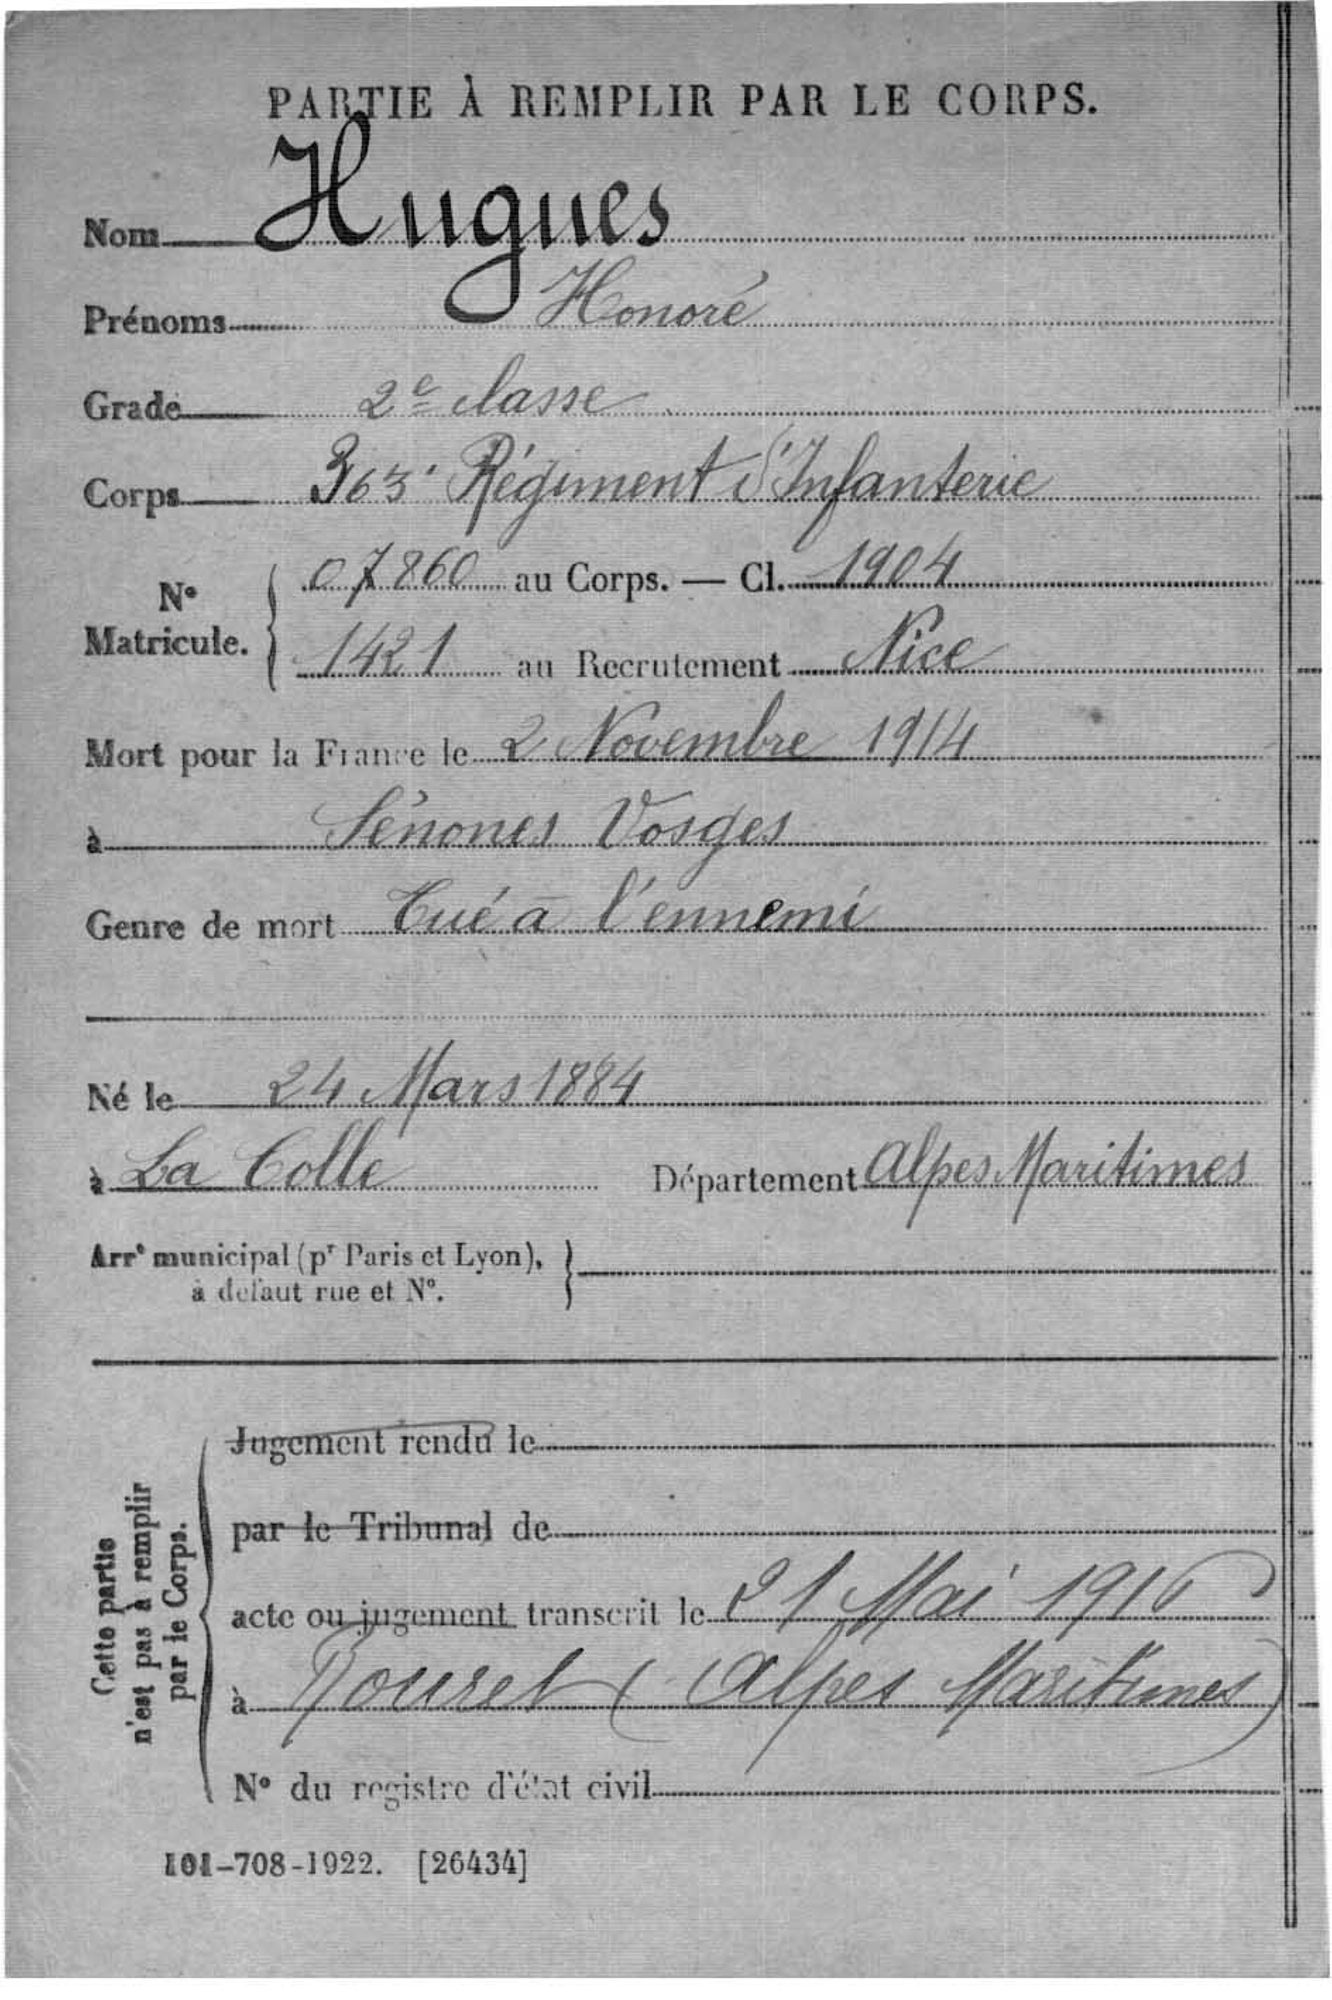 PARTIE À REMPLIR PAR LE CORPS.
Nom Hugues
Prénoms Honoré
Grade 2e classe
Corps 363e Régiment d'Infanterie
No Matricule. { 07860 au Corps. — Cl. 1904
1421 au Recrutement Nice
Mort pour la France le 2 Novembre 1914
à Sénones Vosges
Genre de mort Tué à l'ennemi
Né le 24 Mars 1884
à La Colle Département Alpes Maritimes
Arrt municipal (pr Paris et Lyon), }
à défaut rue et No.
Cette partie
n'est pas à remplir
par le Corps.
Jugement rendu le
par le Tribunal de
acte ou jugement transcrit le 21 Mai 1916
à Rouret (Alpes Maritimes)
No du registre d'état civil
101-708-1922. [26434]